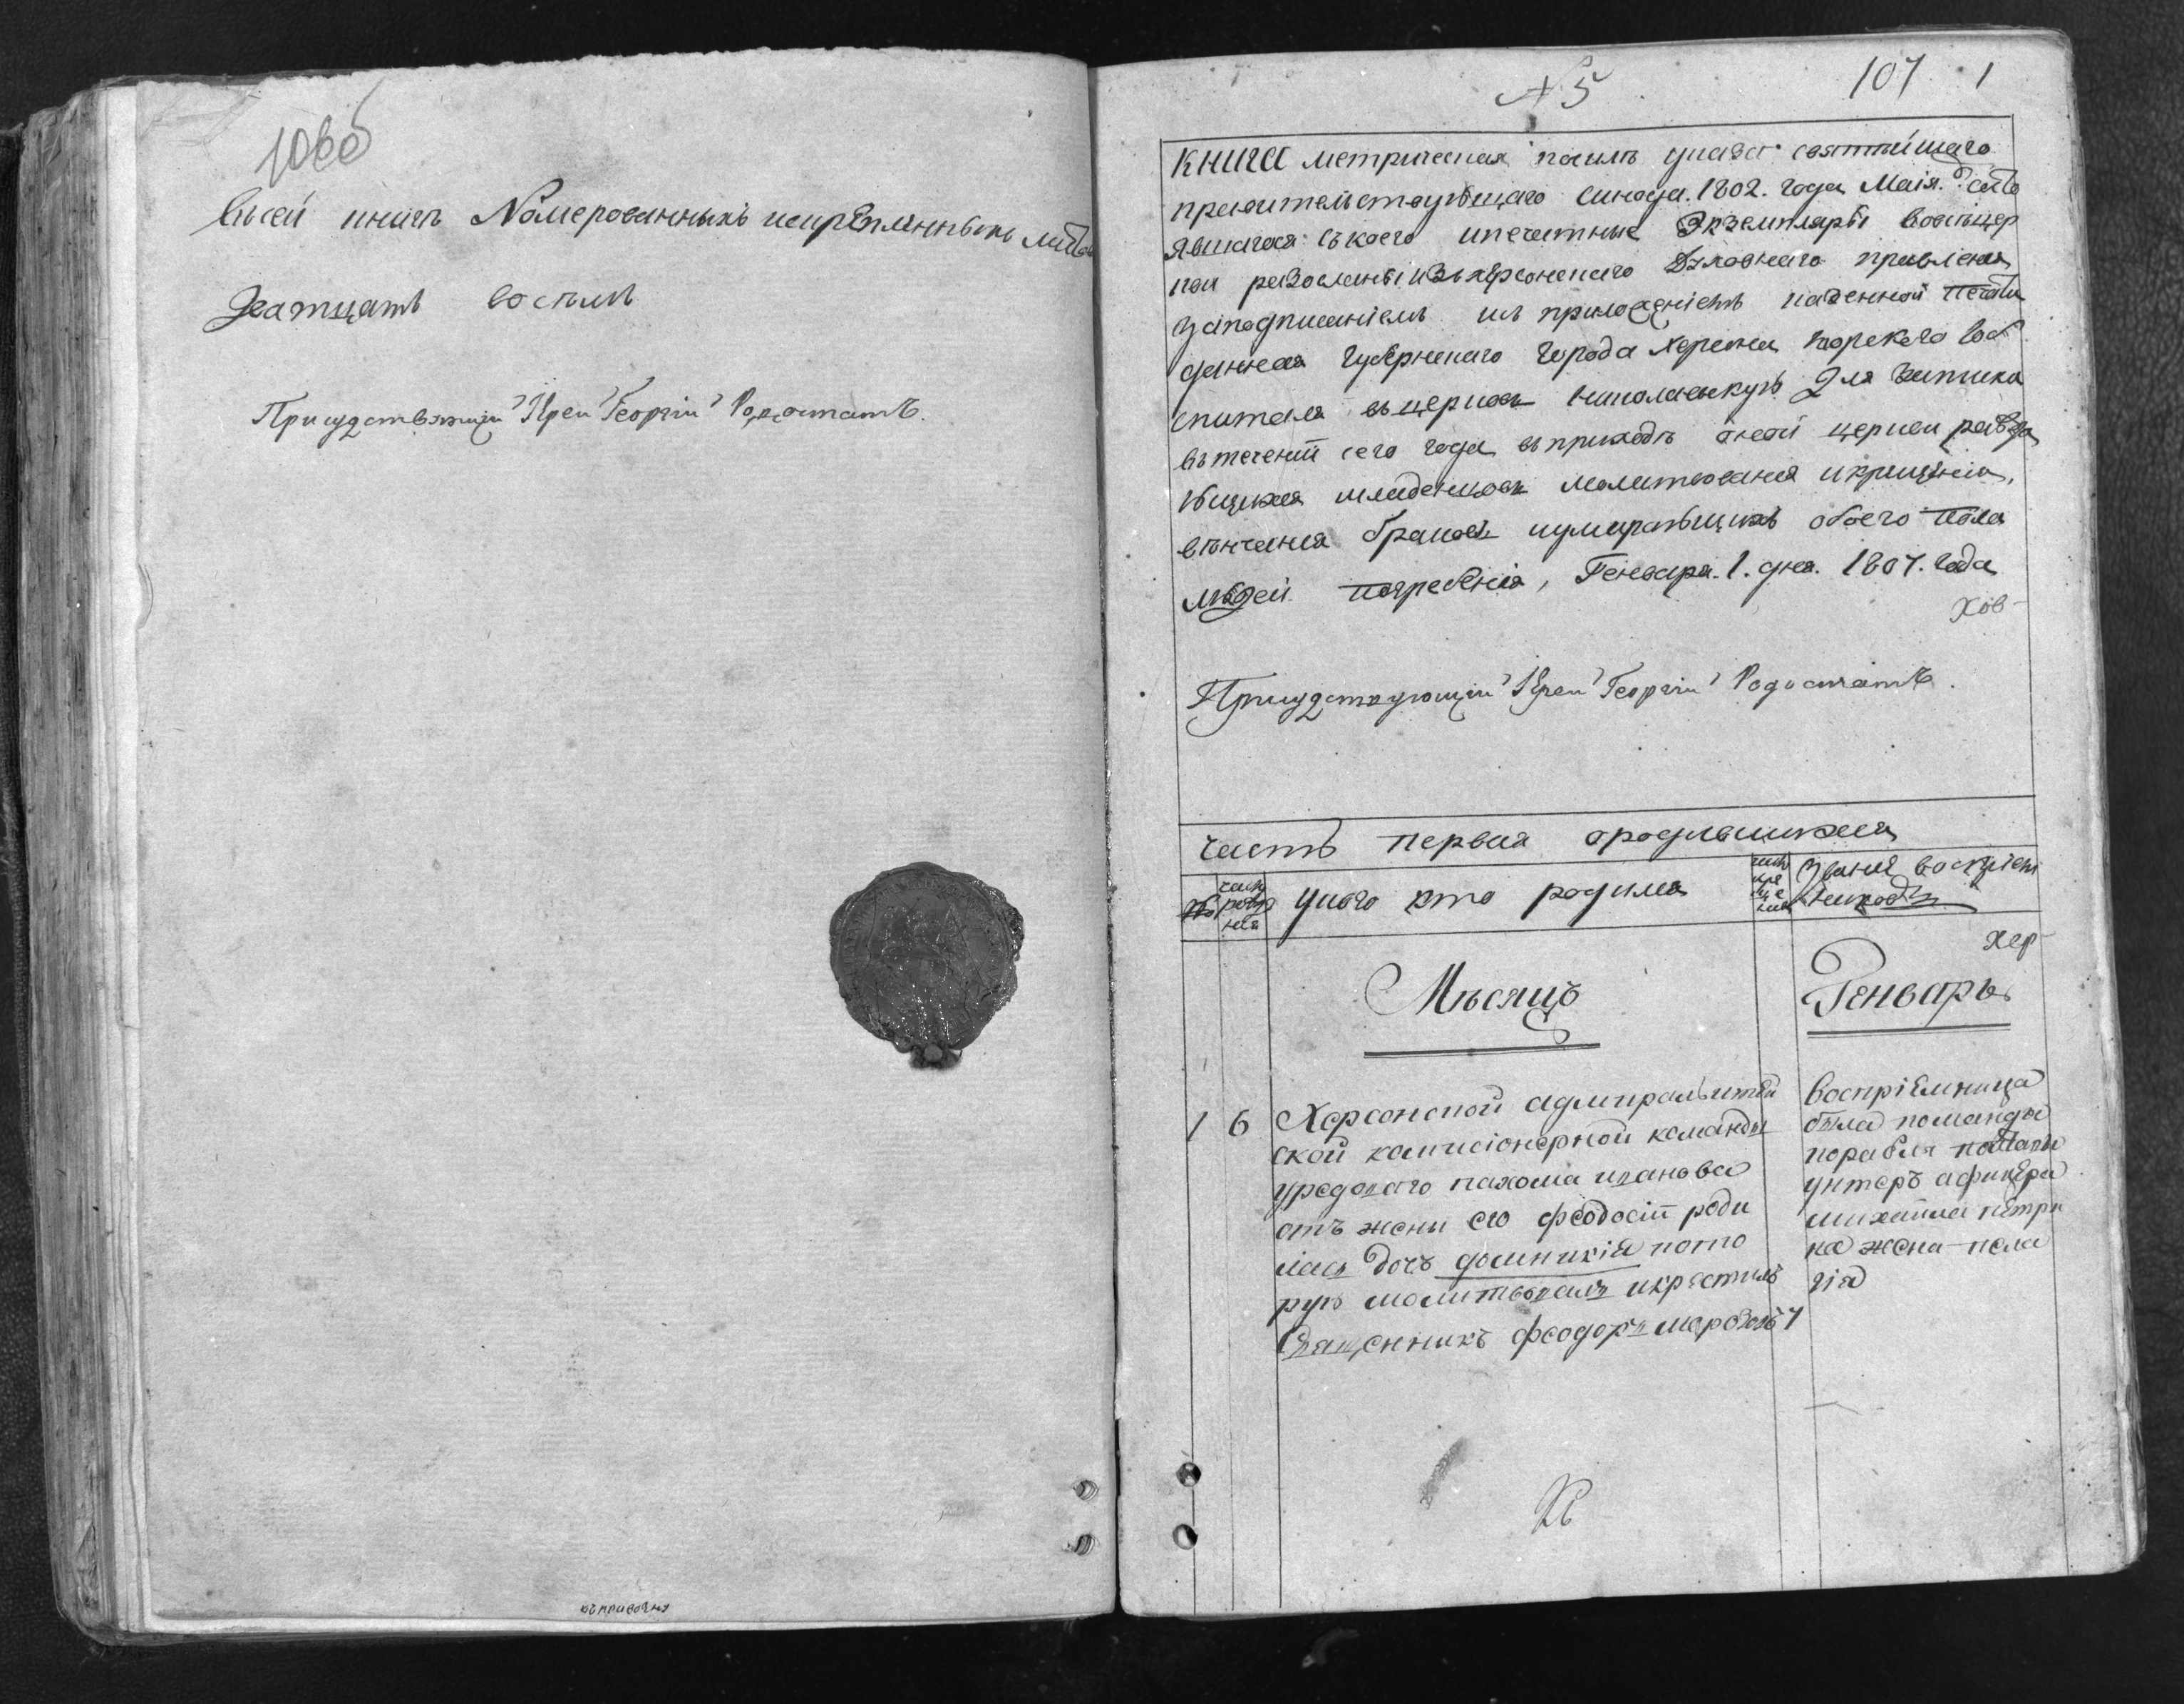 106об
Въсей книгѣ Nомерованныхъ искрѣпленныхъ листов
Дватцатъ восѣмъ
Присудствующій Іерей Георгій Родостатъ.
№ 5
107 1
книга метрическая посилѣ указа святѣйшаго
правителствующаго синода. 1802. года Маія. состо
явшагося съкоего ипечатные Экземпляры вовсѣцер
кви разосланы изъхерсонскаго Духовнаго правления
заподписаніемъ исъ приложеніемъ казенной печати
данная губернскаго города херсона морского гос
спиталя въцерковь николаевскую Для записки
втеченіи сего года въприходѣ оной церкви ражда
ющихся младенцовъ молитвования икрещения,
вѣнчания браковъ иумирающихъ обоего пола
людей погребения, Генваря. 1. дня. 1807. года
хов
Присудствующій Іерей Георгій Родостатъ.
частъ первая ородившихся
№ число рожд ния
укого кто родился
число кре ще ния
звания восприем никовъ
хер
Мѣсяцъ
Генваръ
1 6
Херсонской адмиралытей
ской комисіонерной команды
урядоваго пахома иванова
отъ жены его феодосіи роди
лась дочъ домникія кото
рую молитвовалъ икрестилъ
Священникъ феодоръ морозовъ 7
воспріемница
была команды
корабля
унтеръ афицера
михаила петри
ка жена пела
гія